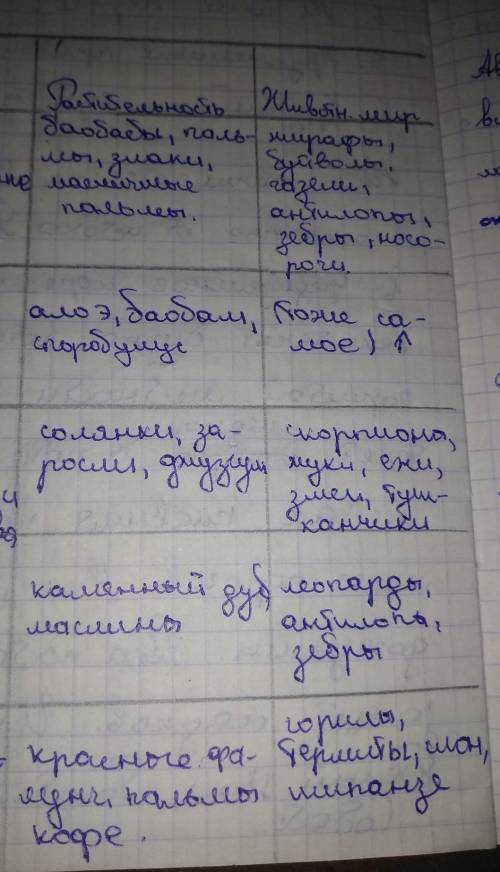 Растительность
баобабы, паль-
мы, злаки,
масличные
пальмы.
Животн. мир
жирафы,
буйволы,
газели,
антилопы,
зебры, носо-
роги.
алоэ, баобаб,
споробулус
(тоже са-
мое) ↑
солянки, за-
росли, джузгун
скорпионы,
жуки, ежи,
змеи, туш-
канчики
каменный дуб,
маслины
леопарды,
антилопы,
зебры
красные, фа-
пальмы
кофе.
горилы,
термиты, слон,
шипанзе